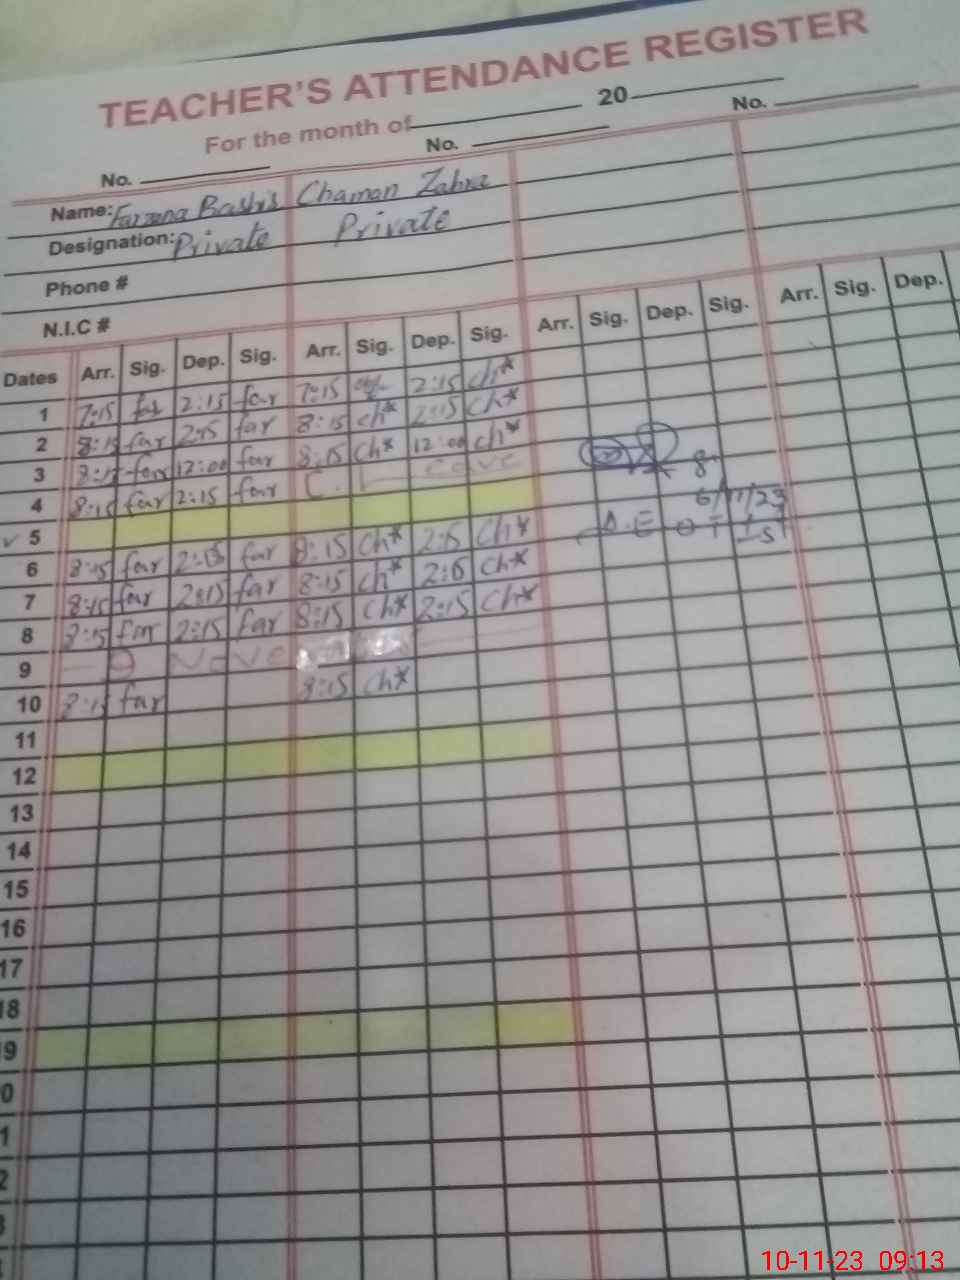 TEACHER'S ATTENDANCE REGISTER
For the month of 20
No. No. No.
Name: Farzana Bashis Chaman Zahra
Designation: Private Private
Phone #
N.I.C #
Dates Arr. Sig. Dep. Sig. Arr. Sig. Dep. Sig. Arr. Sig. Dep. Sig. Arr. Sig. Dep.
1 7:15 far 2:15 far 7:15 2:15 ch*
2 8:15 far 2:15 far 8:15 ch* 2:15 ch*
3 8:15 far 12:00 far 8:15 ch* 12:00 ch*
4 8:15 far 2:15 far C. Leave
5
6 8:15 far 2:15 far 8:15 ch* 2:15 ch*
7 8:15 far 2:15 far 8:15 ch* 2:15 ch*
8 8:15 far 2:15 far 8:15 ch* 2:15 ch*
9 9 Nove
10 8:15 far 8:15 ch*
11
12
13
14
15
16
17
18
9
0
1
2
3
6/11/23
10-11-23 09:13